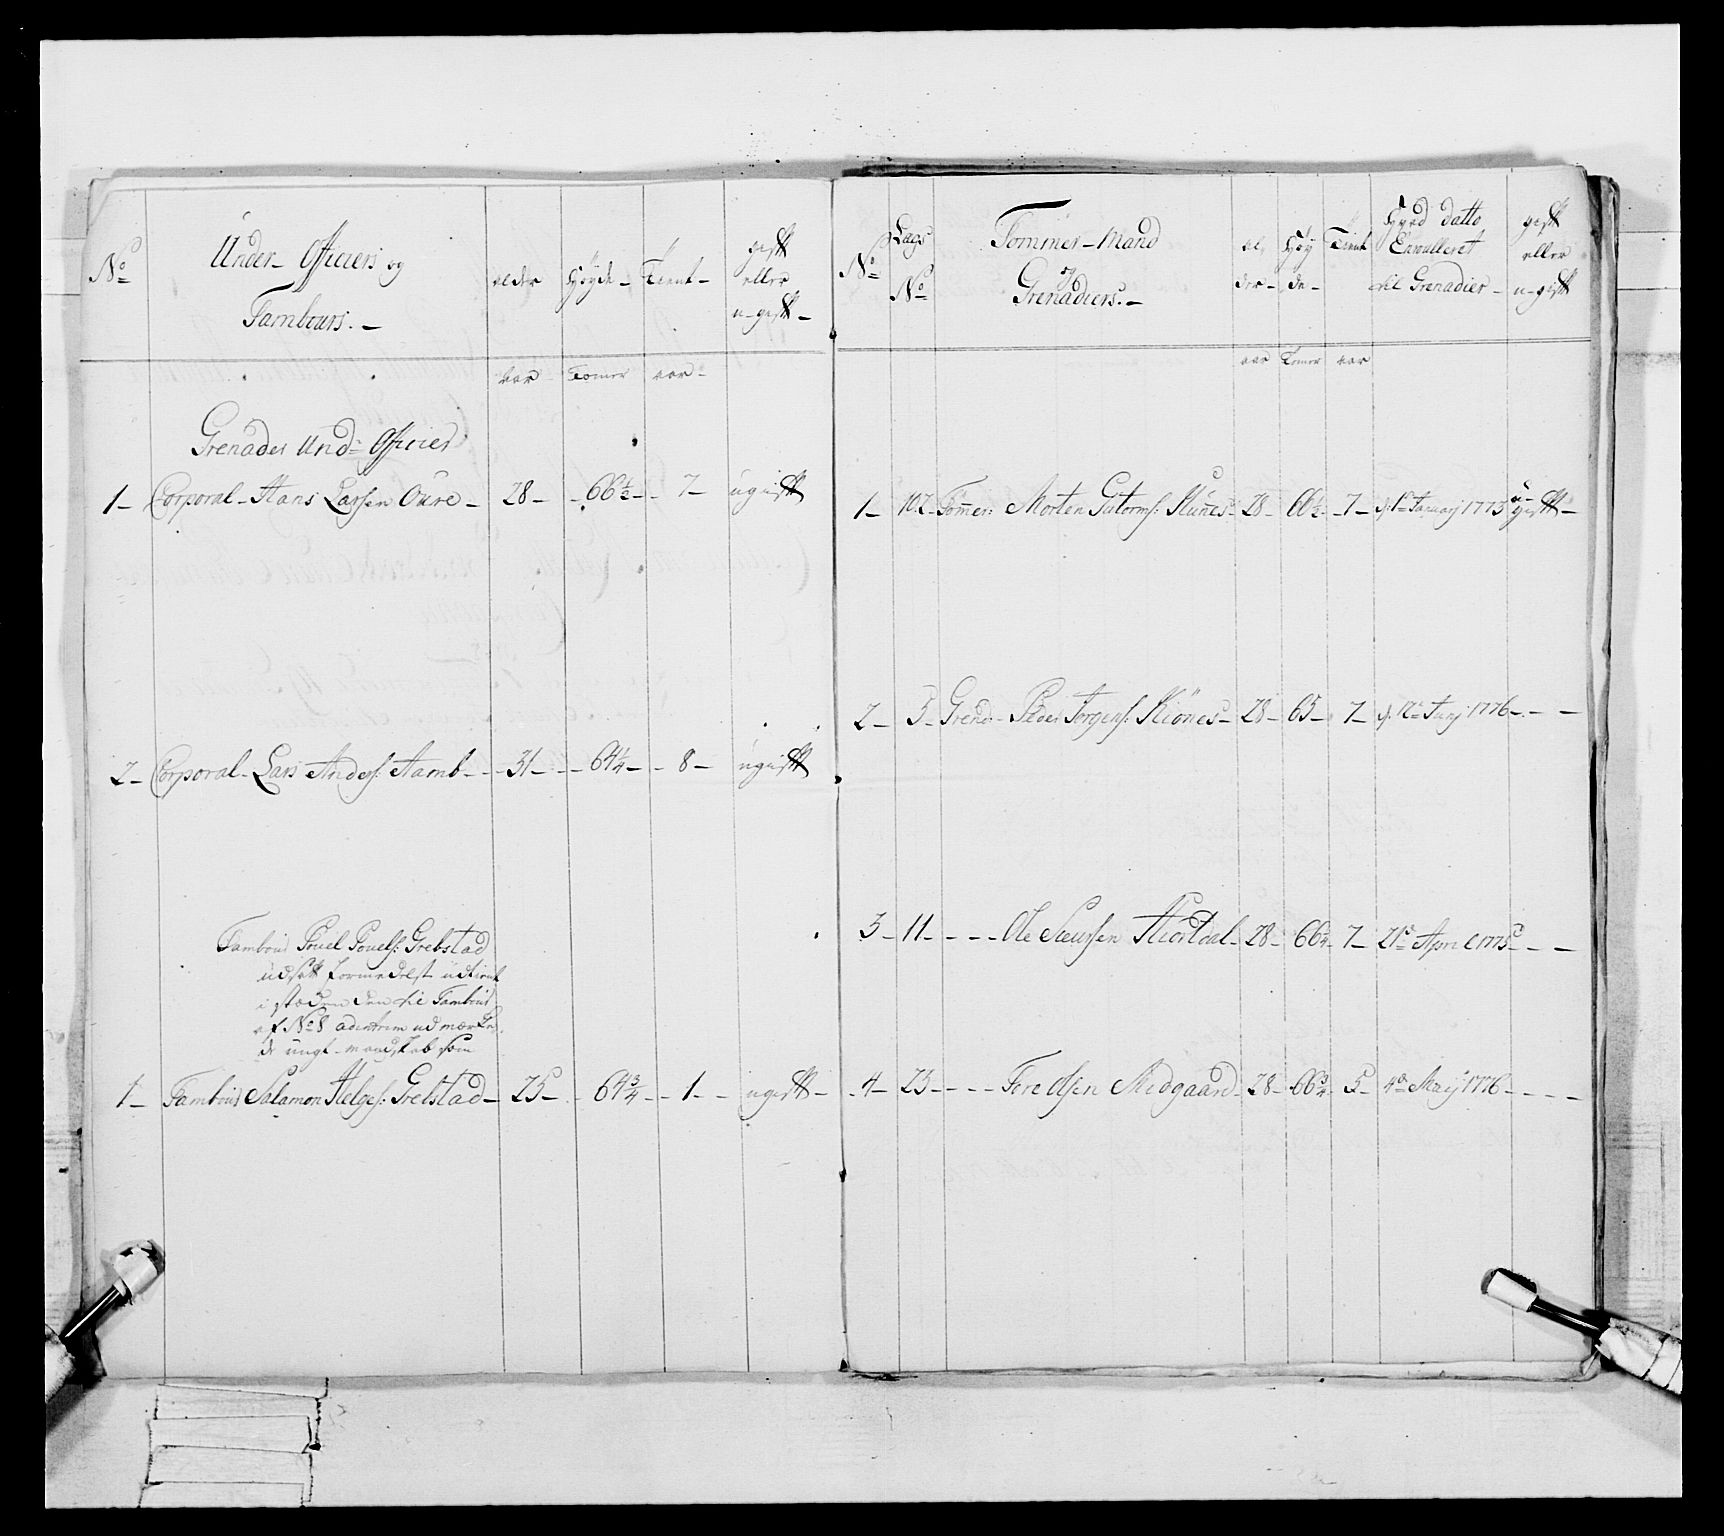 No
Under Officiers og
Tambours.
alder
Höyde
Tient
gift
eller
u-gift
aar Tomer aar
Grenader Und: Officier
1 Corporal Hans Larssen Oure 28 66½ 7 ugift
2 Corporal Lars Anders: Aamb 31 64¼ 8 ugift
Tambour Povel Povels: Grebstad
udsatt formedelst udtient
i stæden den til Tambour
af No 8
de ungt mandskab som
1 Tambour Salamon Helges: Grebstad 25 64¾ 1 ugift
No
Lags
No
Tommer-Mand
og
Grenadiers.
al
der
Höy
de
Tient
Hvad datto
Enrulleret
til Grenadier
gift
eller
u-gift
aar Tomer aar
1 102 Tömer: Morten Gutorms: 28 66½ 7 d: 1te January 1773 u-gift
2 5 Grend: Peder Jörgens: Kiönes 28 65 7 d: 12te Junj 1776
3 11 Ole Hiortdal 28 66¼ 7 21de April 1775
4 23 Tore Olsen Midgaard 28 66¾ 5 4de Maij 1776